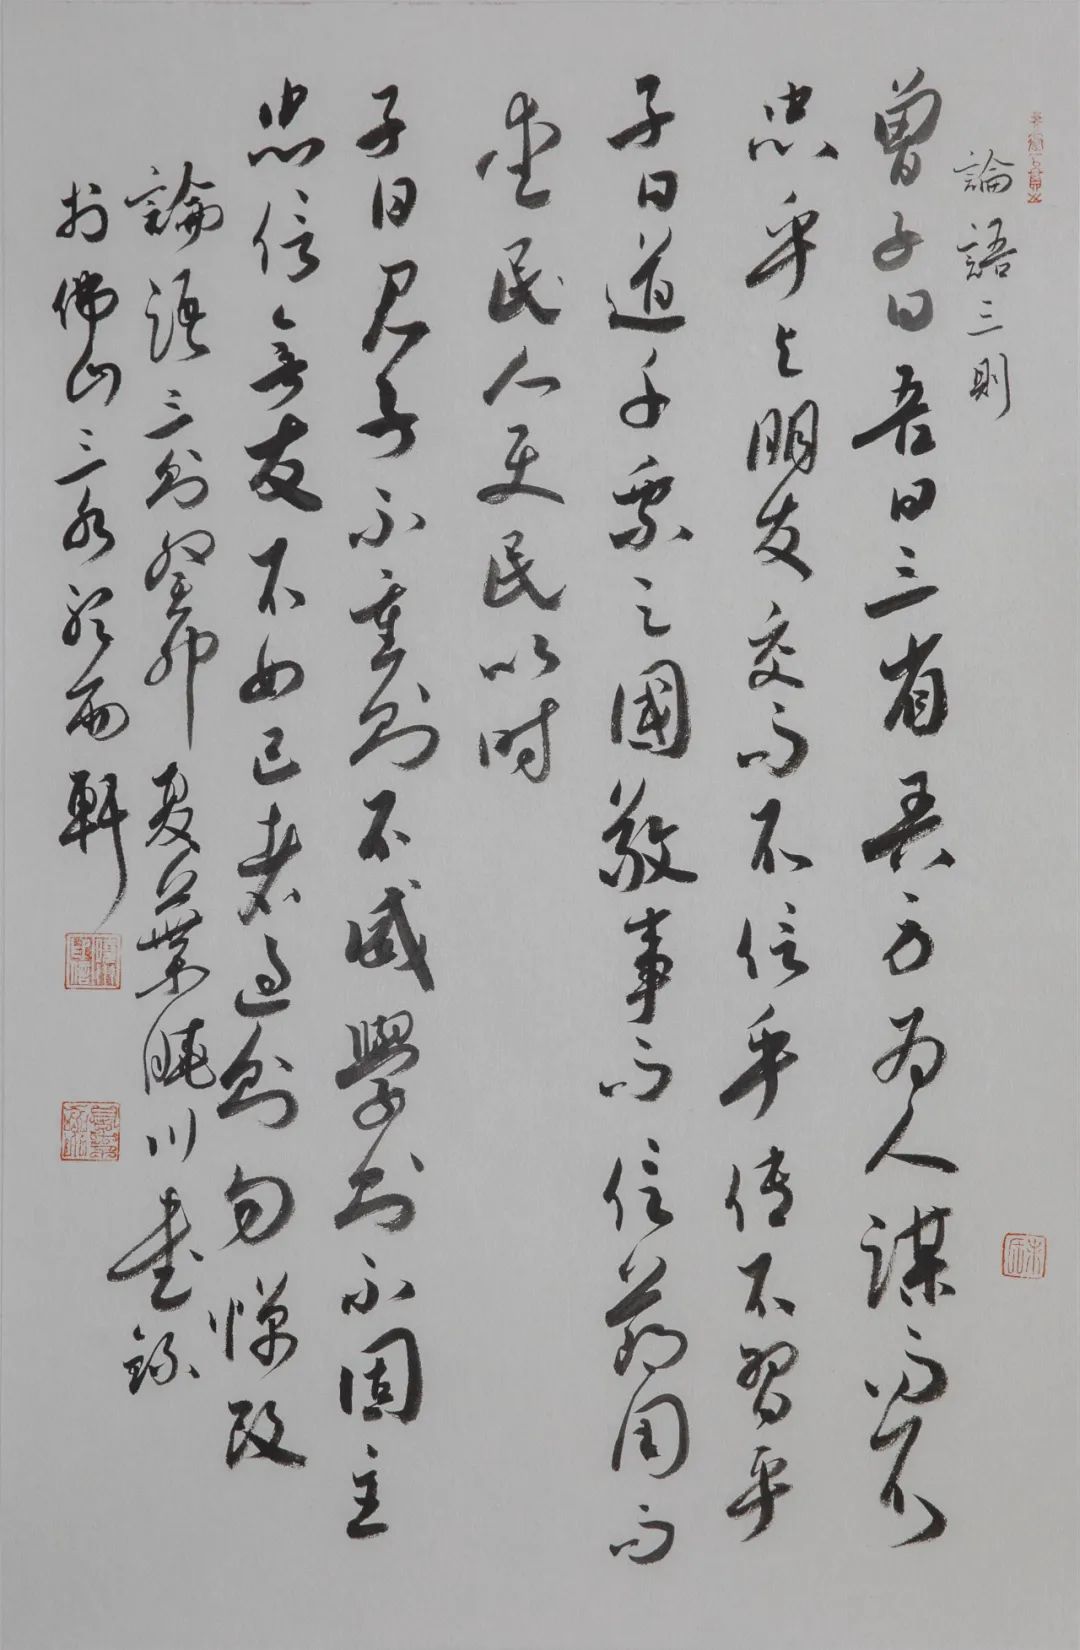 論語三則
曾子曰吾日三省吾身为人謀而不
忠乎与朋友交而不信乎傳不習乎
子曰道千乘之國敬事而信節用而
愛民人使民以时
子曰君子不重則不威學則不固主
忠信無友不如己者過則勿憚改
論語三則癸卯夏葉曉川書錄
於佛山三水聽雨軒